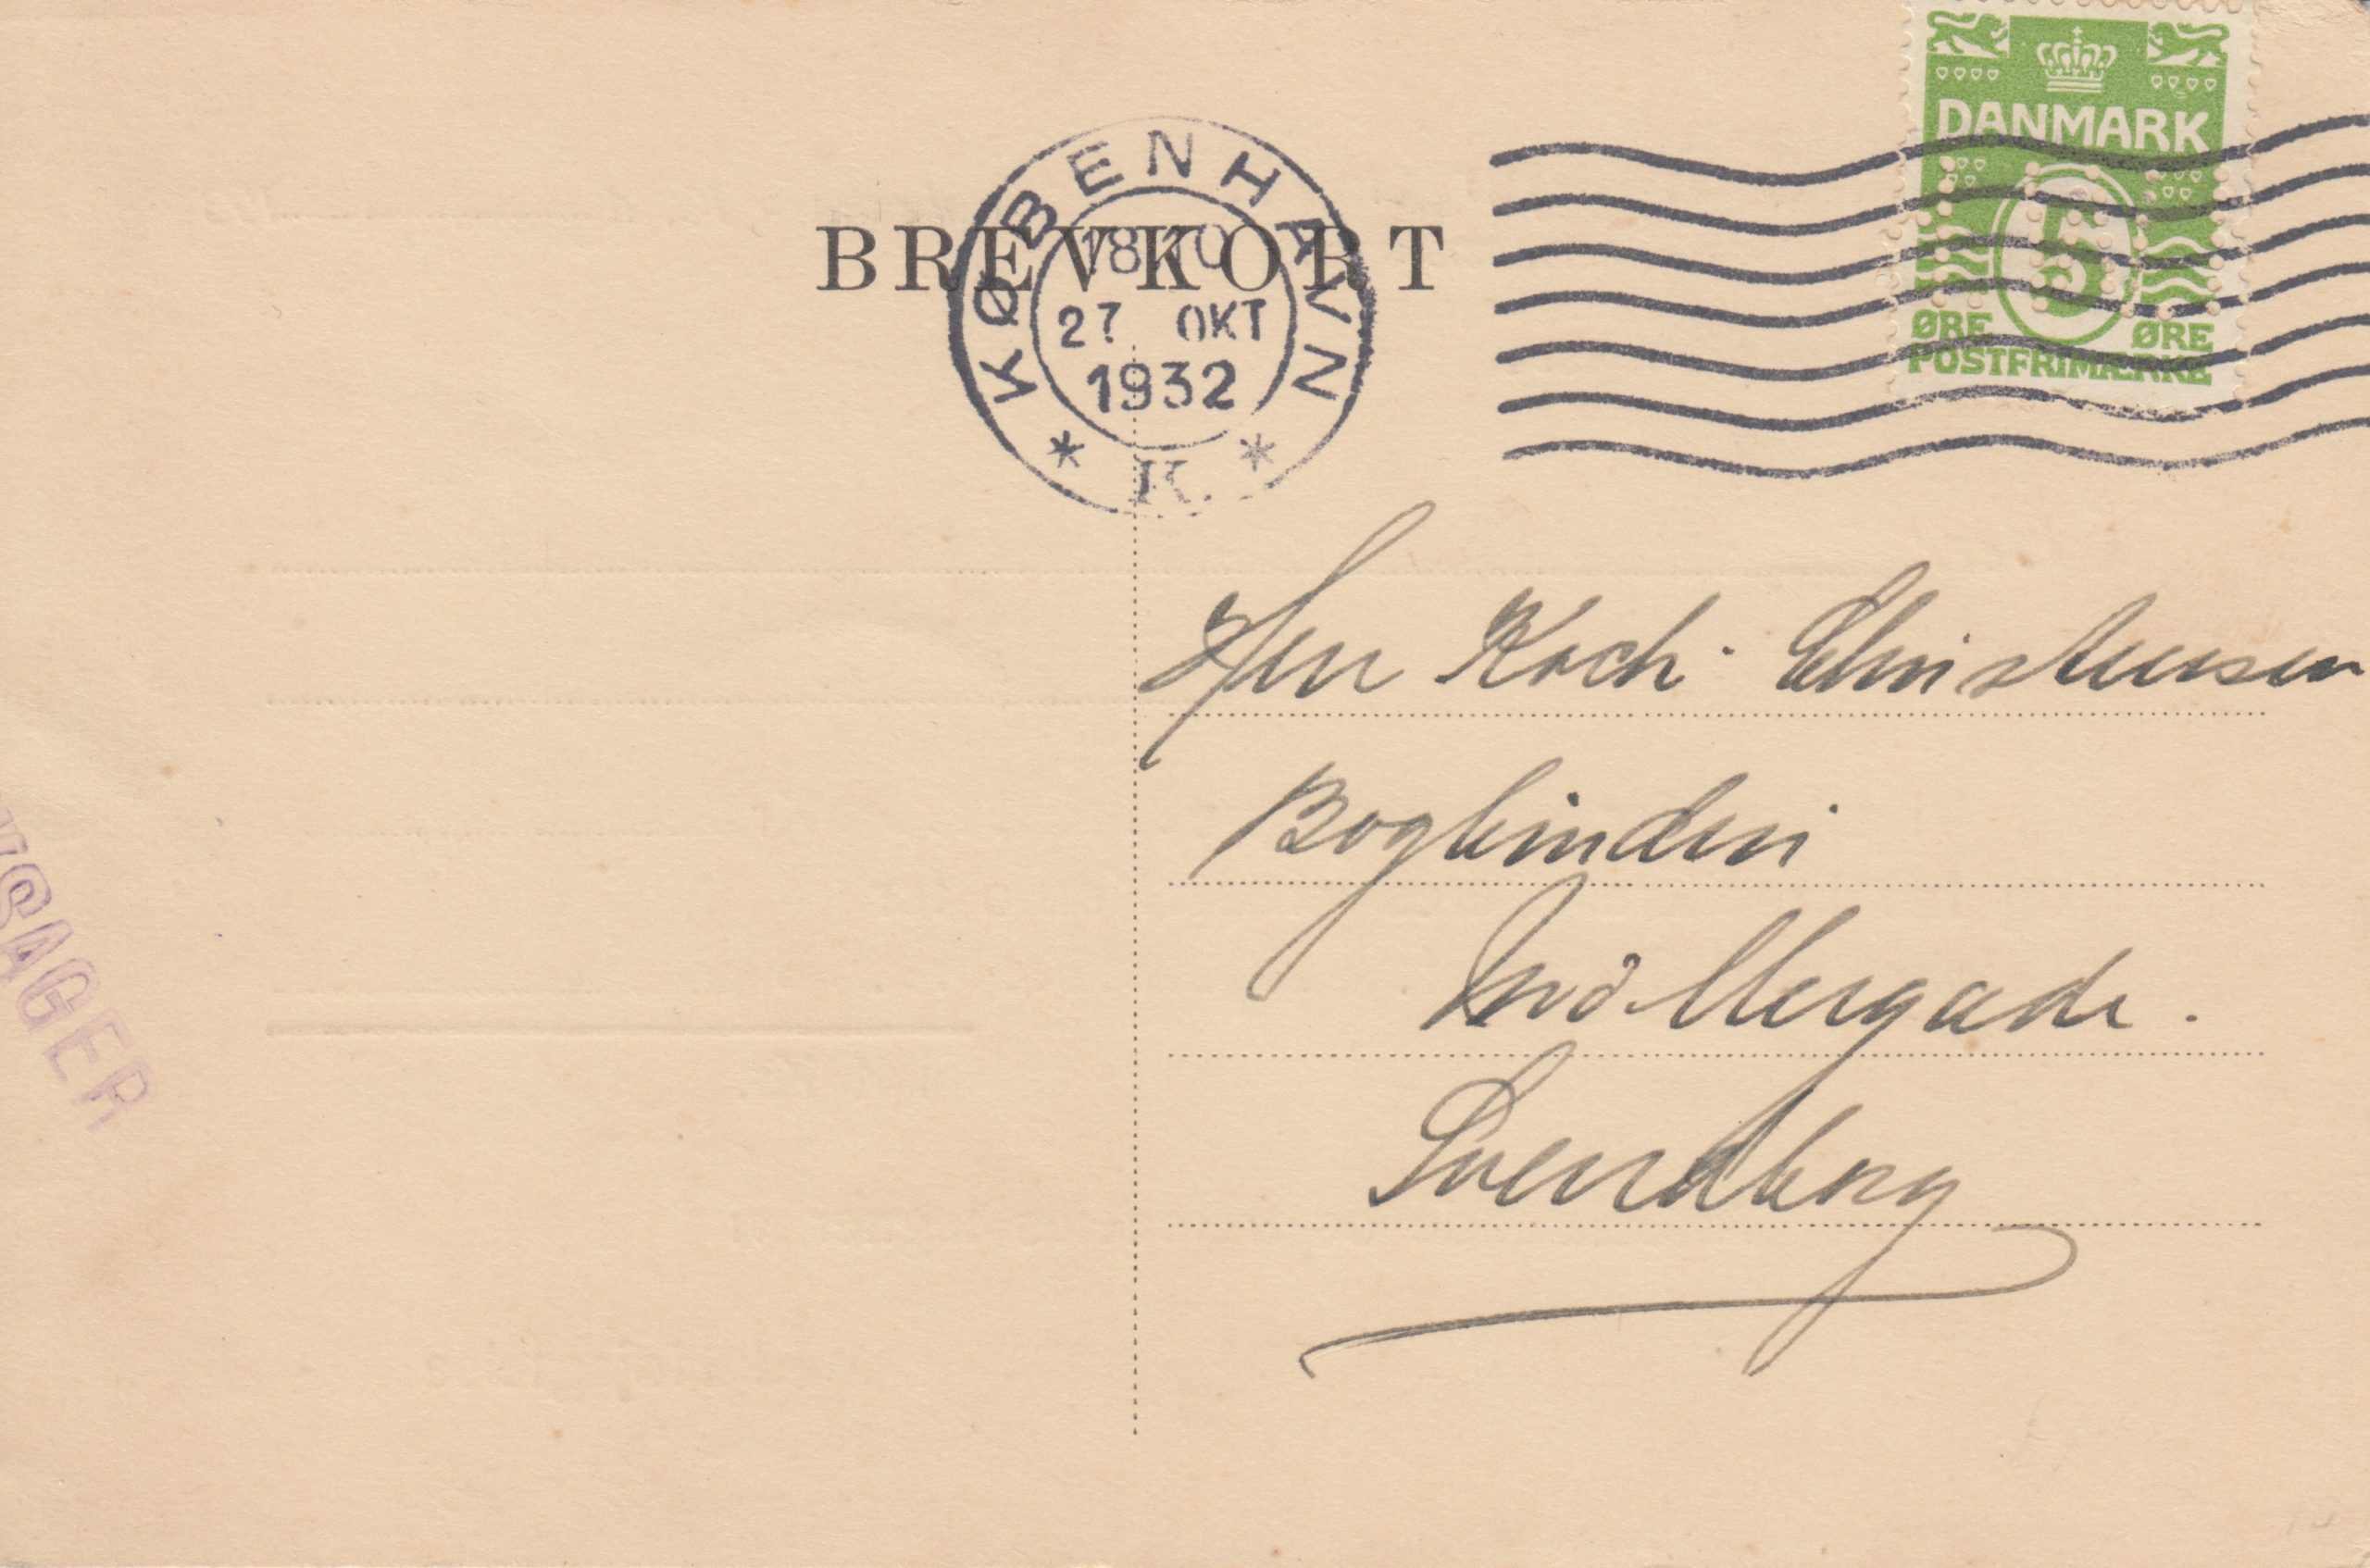 DANMARK
5
ØRE ØRE
POSTFRIMÆRKE
BREVKORT
KØBENHAVN
18
27 OKT
1932
* K. *
Herr Koch-Christensen
Bogbinderi
Möllergade.
Svendborg
SAGER